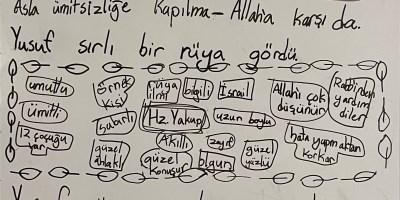 Asla ümitsizliğe Kapılma - Allaha karşı da.
Yusuf sırlı bir rüya gördü.
umutlu
örnek kişi
rüya ilmi
bilgili
İsrail
Allahı çok düşünür
Rabbinden yardım diler
ümitli
sabırlı
Hz. Yakup
uzun boylu
12 çocuğu var
güzel ahlaklı
Akıllı
zayıf
hata yapmaktan korkar
güzel konuşur
olgun
güzel yüzlü